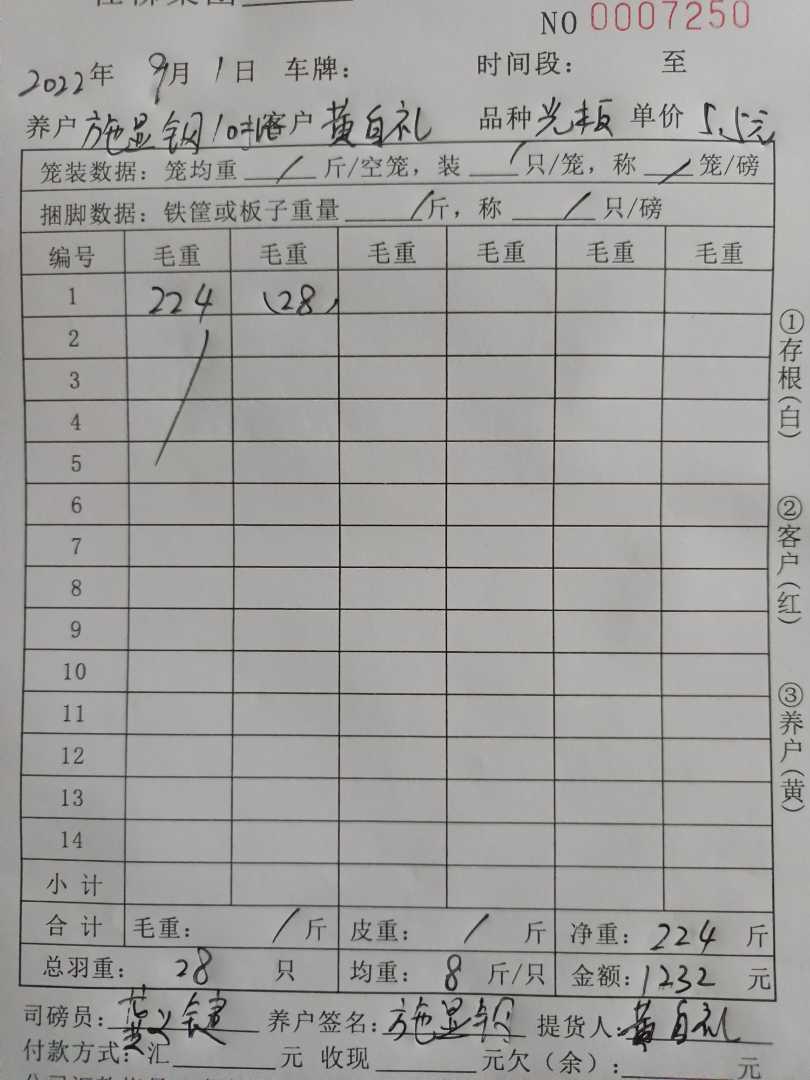 NO 0007250
2022年 9月 1日 车牌： 时间段： 至
养户 施显钢 客户 黄自礼 品种 光板 单价 5.5元
笼装数据：笼均重 / 斤/空笼，装 / 只/笼，称 / 笼/磅
捆脚数据：铁筐或板子重量 / 斤，称 / 只/磅
编号 毛重 毛重 毛重 毛重 毛重 毛重
1 224 (28)
2
3
4
5
6
7
8
9
10
11
12
13
14
小计
合计 毛重： / 斤 皮重： / 斤 净重：224 斤
总羽重： 28 只 均重： 8 斤/只 金额：1232 元
司磅员： 养户签名：施显钢 提货人：黄自礼
付款方式：汇 元 收现 元欠（余）： 元
①存根（白）
②客户（红）
③养户（黄）